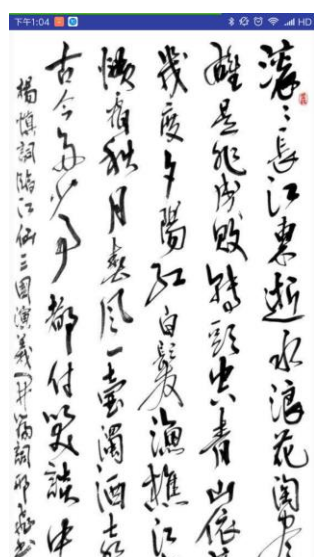 下午1:04 HD
滚〻長江東逝水浪花淘尽
雄是非成敗轉頭空青山依
幾度夕陽红白髮漁樵江
惯看秋月春風一壶濁酒喜
古今多少事都付笑談中
楊慎詞臨江仙三國演義开篇詞邱